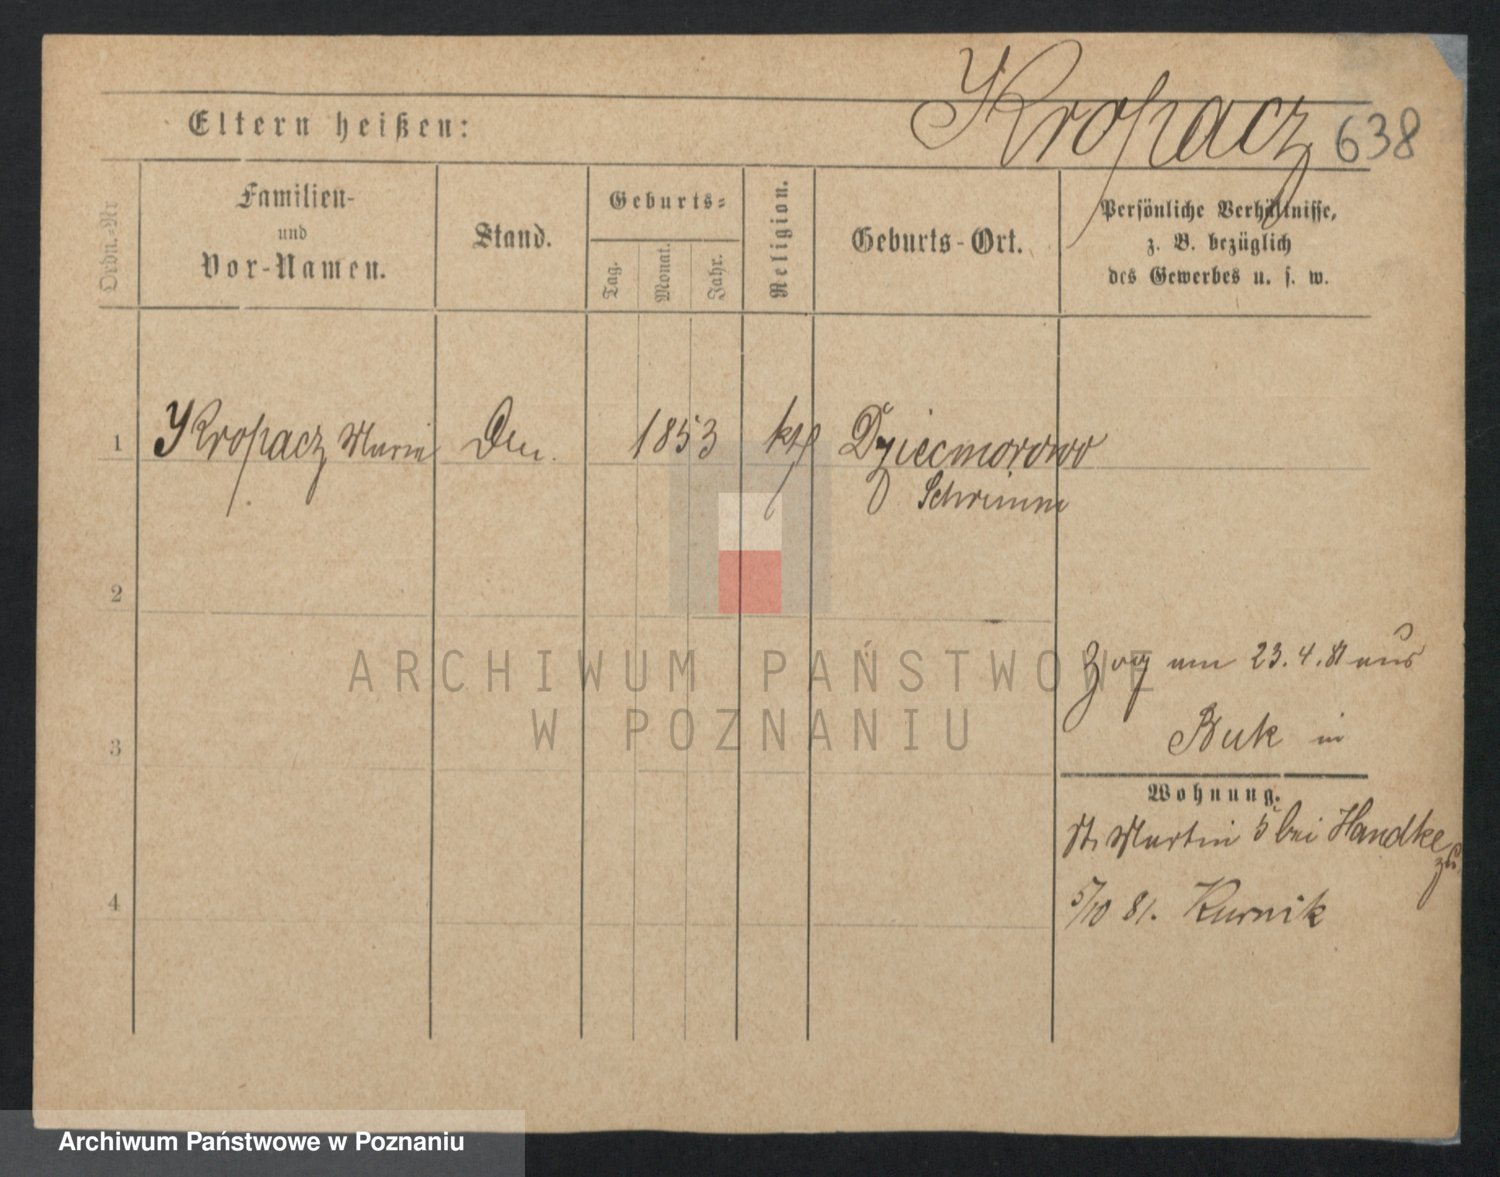 Kropacz 638
Eltern heißen:
Ordn.-Nr
Familien-
und
Vor-Namen.
Stand.
Geburts-
Tag.
Monat.
Jahr.
Religion.
Geburts-Ort.
Persönliche Verhältnisse,
z. B. bezüglich
des Gewerbes u. s. w.
1 Kropacz Marie 1853 kth Dziecmorowo
Schrimm
2
zog am 23.4.81 aus
Buk in
3
Wohnung.
St. Martin 5 bei Handke
5/10 81. Kurnik
4
ARCHIWUM PAŃSTWOWE
W POZNANIU
Archiwum Państwowe w Poznaniu